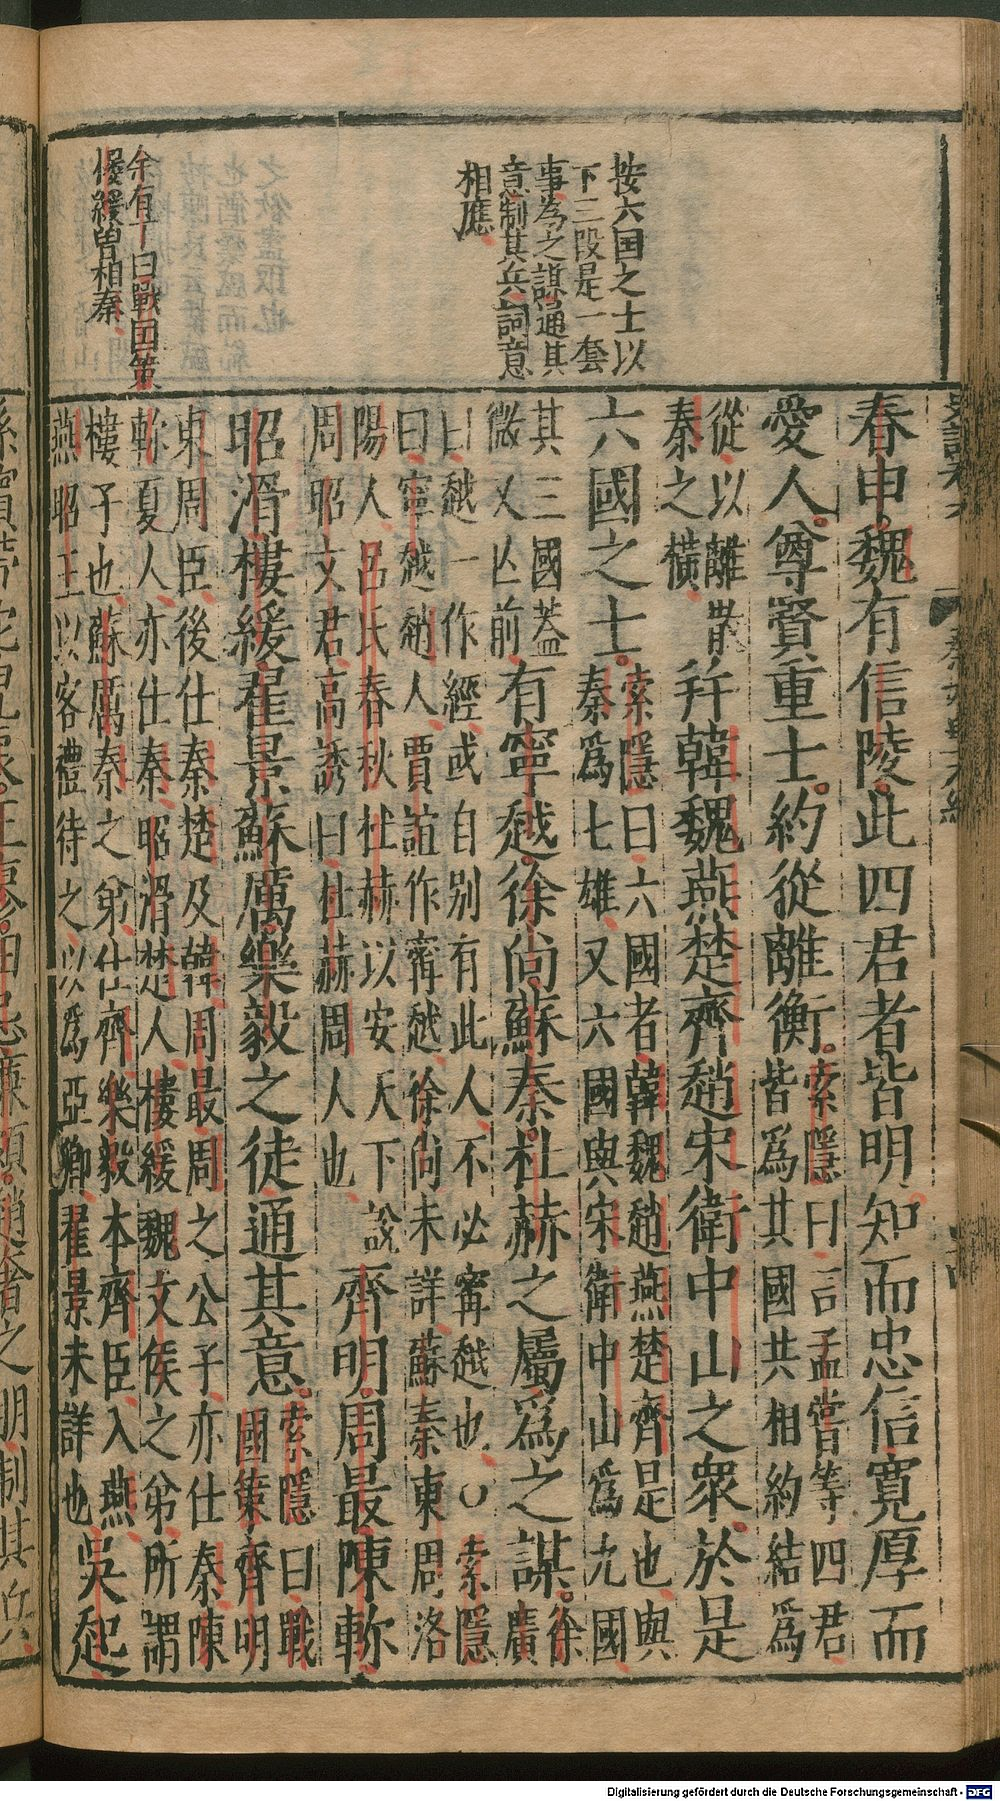 按六国之士以
下三段是一套
事為之謀通其
意制其兵詞意
相應
余有丁曰戰国策
緩曽相秦
春申魏有信陵此四君者皆明知而忠信寬厚而
愛人尊賢重士約從離衡
索隱曰言孟嘗等四君
皆爲其國共相約結爲
從以離散
秦之橫
并韓魏燕楚齊趙宋衛中山之衆於是
六國之士
索隱曰六國者韓魏趙燕楚齊是也與
秦爲七雄又六國與宋衛中山爲九國
其三國蓋
微又亡前
有寧越徐尚蘇秦杜赫之屬爲之謀
徐
廣
曰越一作經或自别有此人不必甯越也○索隱
曰寧越趙人賈誼作甯越徐尚未詳蘇秦東周洛
陽人呂氏春秋杜赫以安天下說
周昭文君高誘曰杜赫周人也
齊明周最陳軫
昭滑樓緩翟景蘇厲樂毅之徒通其意
索隱曰戰
國策齊明
東周臣後仕秦楚及韓周最周之公子亦仕秦陳
軫夏人亦仕秦昭滑楚人樓緩魏文侯之弟所謂
樓子也蘇厲秦之弟仕齊樂毅本齊臣入燕
燕昭王以客禮待之以爲亞卿翟景未詳也
吳起
Digitalisierung gefördert durch die Deutsche Forschungsgemeinschaft - DFG